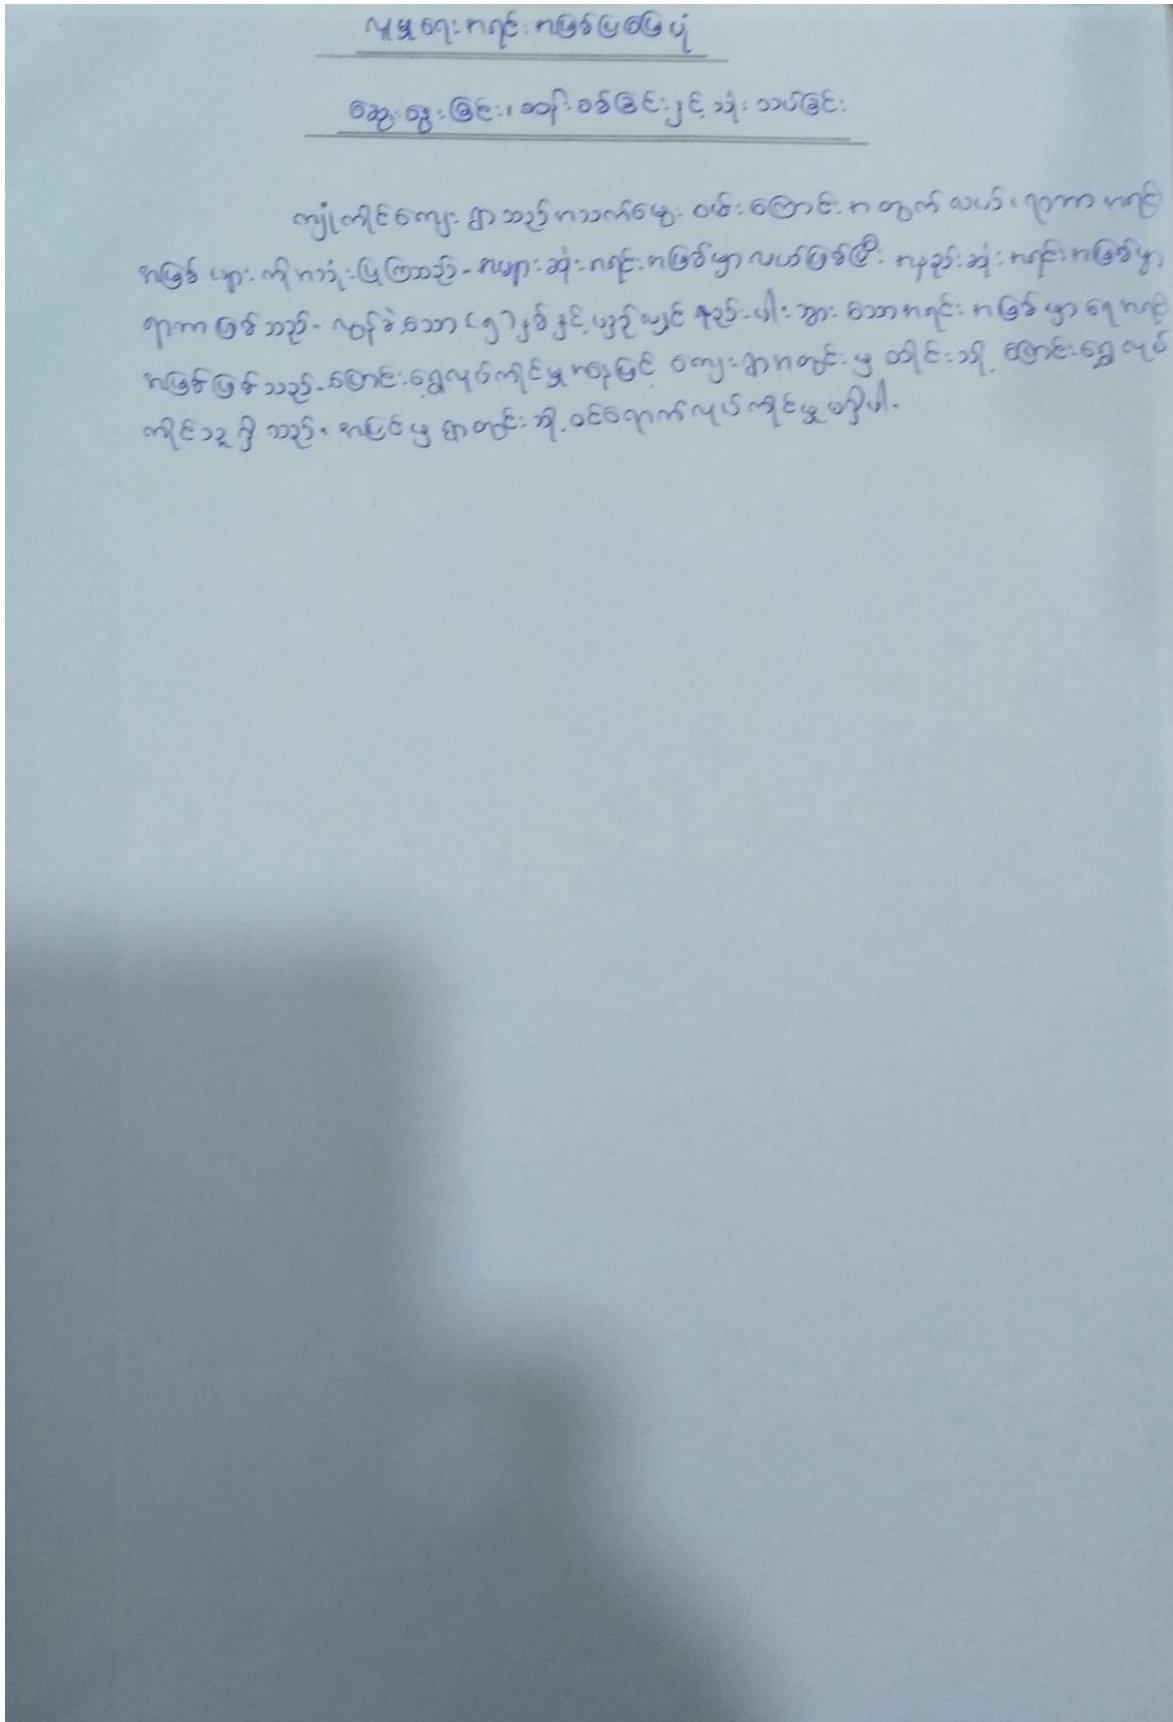 လူမှုရေးအရင်းအမြစ်ပြမြေပုံ
ဆွေးနွေးခြင်း၊ ဆန်းစစ်ခြင်းနှင့် သုံးသပ်ခြင်း
ကျုံကိုင်ကျေးရွာသည် အသက်မွေးဝမ်းကြောင်းအတွက် လယ်၊ ရာဘာ အရင်း
အမြစ်များကို အသုံးပြုကြသည်။ အများဆုံးအရင်းအမြစ်မှာ လယ်ဖြစ်ပြီး အနည်းဆုံးအရင်းအမြစ်မှာ
ရာဘာဖြစ်သည်။ လွန်ခဲ့သော (၅)နှစ်နှင့်ယှဉ်လျှင် နည်းပါးသွားသောအရင်းအမြစ်မှာ ရေအရင်း
အမြစ်ဖြစ်သည်။ ပြောင်းရွှေ့လုပ်ကိုင်မှုအနေဖြင့် ကျေးရွာအတွင်းမှ ထိုင်းသို့ ပြောင်းရွှေ့လုပ်
ကိုင်သူရှိသည်။ အပြင်မှ ရွာတွင်းသို့ ဝင်ရောက်လုပ်ကိုင်မှု မရှိပါ။